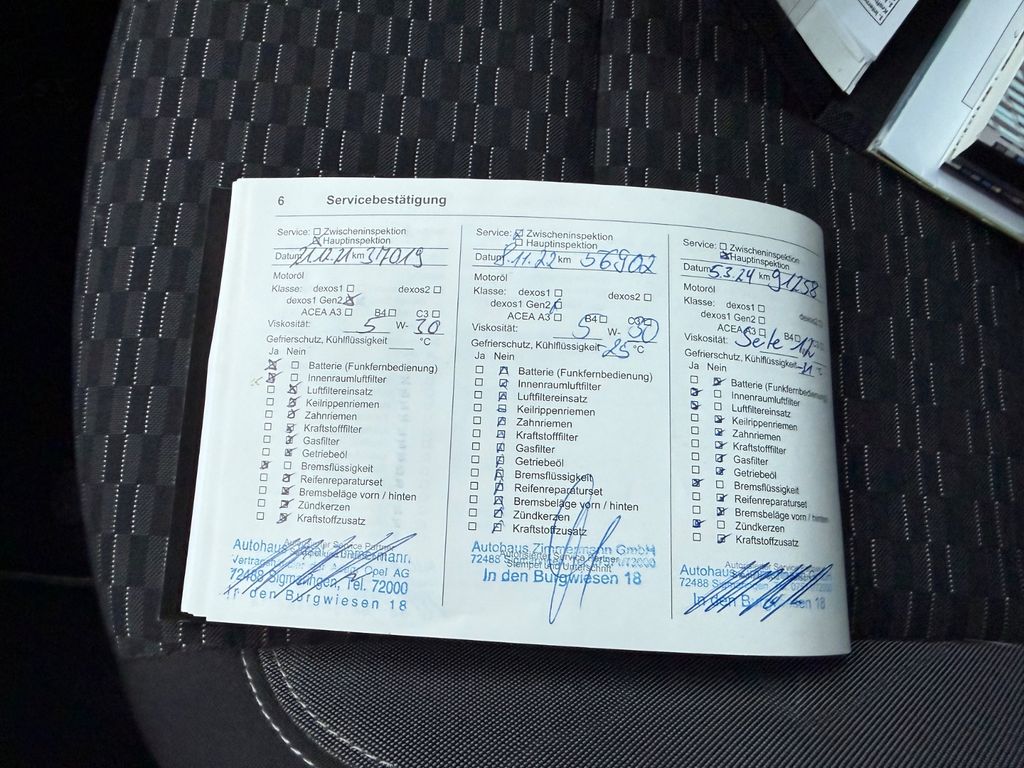 6 Servicebestätigung
Service: Zwischeninspektion
Hauptinspektion
Datum km 37019
Motoröl
Klasse: dexos1 dexos2
dexos1 Gen2
ACEA A3 B4 C3
Viskosität: 5 W- 30
Gefrierschutz, Kühlflüssigkeit °C
Ja Nein
Batterie (Funkfernbedienung)
Innenraumluftfilter
Luftfiltereinsatz
Keilrippenriemen
Zahnriemen
Kraftstofffilter
Gasfilter
Getriebeöl
Bremsflüssigkeit
Reifenreparaturset
Bremsbeläge vorn / hinten
Zündkerzen
Kraftstoffzusatz
Autohaus Zimmermann
72488 Sigmaringen, Tel. 72000
In den Burgwiesen 18
Service: Zwischeninspektion
Hauptinspektion
Datum 8.11.22 km 56902
Motoröl
Klasse: dexos1 dexos2
dexos1 Gen2
ACEA A3 B4 C3
Viskosität: 5 W- 30
Gefrierschutz, Kühlflüssigkeit -25 °C
Ja Nein
Batterie (Funkfernbedienung)
Innenraumluftfilter
Luftfiltereinsatz
Keilrippenriemen
Zahnriemen
Kraftstofffilter
Gasfilter
Getriebeöl
Bremsflüssigkeit
Reifenreparaturset
Bremsbeläge vorn / hinten
Zündkerzen
Kraftstoffzusatz
Autohaus Zimmermann GmbH
Autorisierter Service Partner
72488
Stempel und Unterschrift
In den Burgwiesen 18
Service: Zwischeninspektion
Hauptinspektion
Datum 5.3.24 km 91258
Motoröl
Klasse: dexos1 dexos2
dexos1 Gen2
ACEA A3 B4
Viskosität: Seite 12
Gefrierschutz, Kühlflüssigkeit °C
Ja Nein
Batterie (Funkfernbedienung)
Innenraumluftfilter
Luftfiltereinsatz
Keilrippenriemen
Zahnriemen
Kraftstofffilter
Gasfilter
Getriebeöl
Bremsflüssigkeit
Reifenreparaturset
Bremsbeläge vorn / hinten
Zündkerzen
Kraftstoffzusatz
Autohaus
72488
In den 18